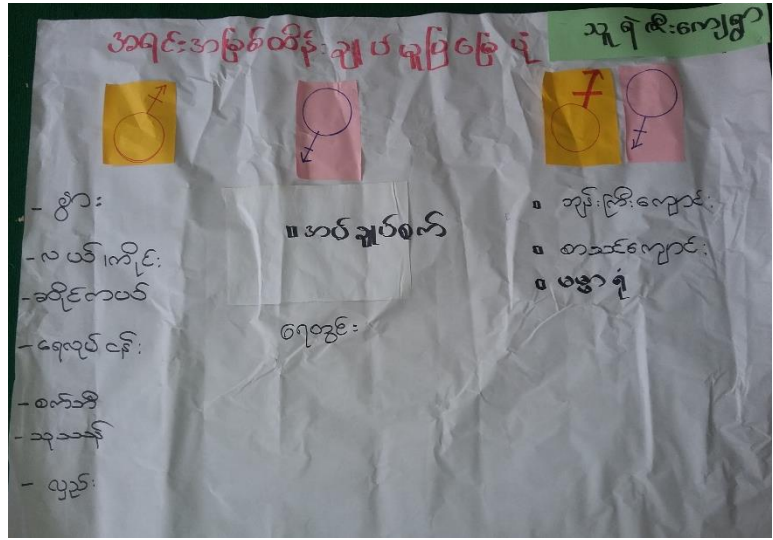 အရင်းအမြစ်ထိန်းချုပ်မှုပြမြေပုံ
သူရဲဇီးကျေးရွာ
- ဖွား
- လယ်၊ကိုင်း
- ဆိုင်ကယ်
- ရေလုပ်ငန်း
- စက်ဘီ
- သုသာန်
- လှည်း
အပ်ချုပ်စက်
ရေတွင်း
ဘုန်းကြီးကျောင်း
စာသင်ကျောင်း
ဓမ္မာရုံ